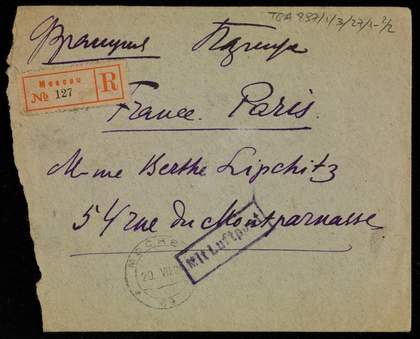 TGA 897/1/3/27/1-2/2
Франция Париж
Moscou R
№ 127
France. Paris.
M-me Berthe Lipchitz
54 rue du Montparnasse
Mit Luftpost
МОСКВА
20 VII